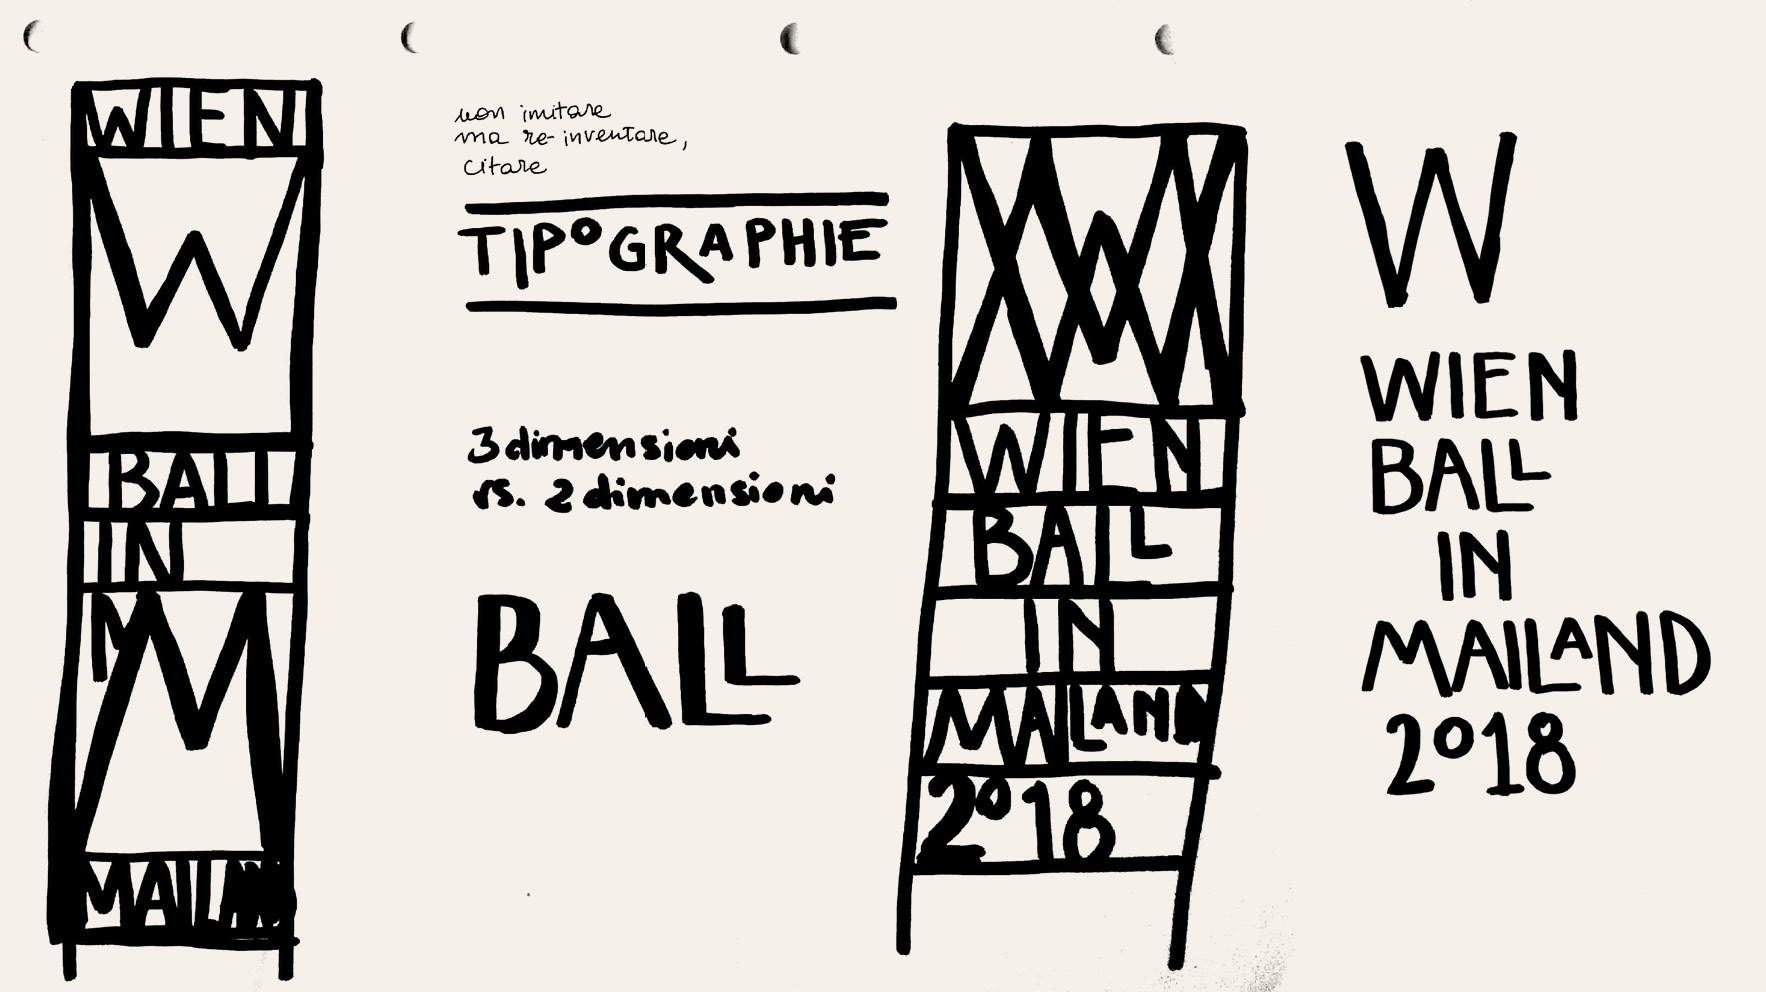 WIEN
W
BALL
IN
M
MAILAND
non imitare
ma re-inventare,
citare
TIPOGRAPHIE
3 dimensioni
vs. 2 dimensioni
BALL
W
WIEN
BALL
IN
MAILAND
2018
W
WIEN
BALL
IN
MAILAND
2018